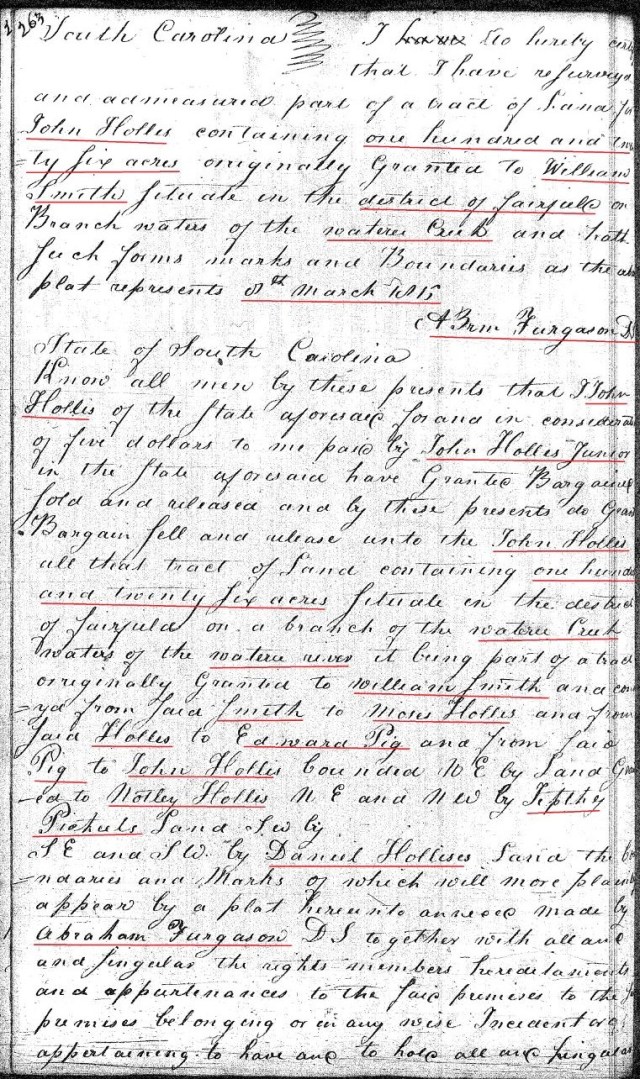 263
South Carolina I have do hereby
that I have resurveyed
and admeasured part of a tract of Land for
John Hollis containing one hundred and
=ty six acres originally Granted to William
Smith situate in the district of fairfield on
Branch waters of the wateree Creek and hath
such forms marks and Boundaries as the
plat represents 8th march 1815
Abrm Furgason DS
State of South Carolina
Know all men by these presents that I John
Hollis of the State aforesaid for and in
of five dollars to me paid by John Hollis Junior
in the State aforesaid have Granted Bargained
sold and released and by these presents do
Bargain sell and release unto the John Hollis
all that tract of Land containing one
and twenty six acres situate in the
of fairfield on a branch of the wateree Creek
waters of the wateree river it being part of a tract
originally Granted to william Smith and con
=yd from said Smith to Moses Hollis and from
said Hollis to Edward Pig and from said
Pig to John Hollis bounded N E by Land
=ed to Notley Hollis N E and N W by Jepthy
Pickels Land S.W by
S E and S W. by Daniel Holleses Land the
=ndaries and Marks of which will more plainly
appear by a plat hereunto annexed made by
Abraham Furgason D S together with all and
and singular the rights members hereditaments
and appurtenances to the said premises to the
premises belonging or in any wise Incident or
appertaining to have and to hold all and singular